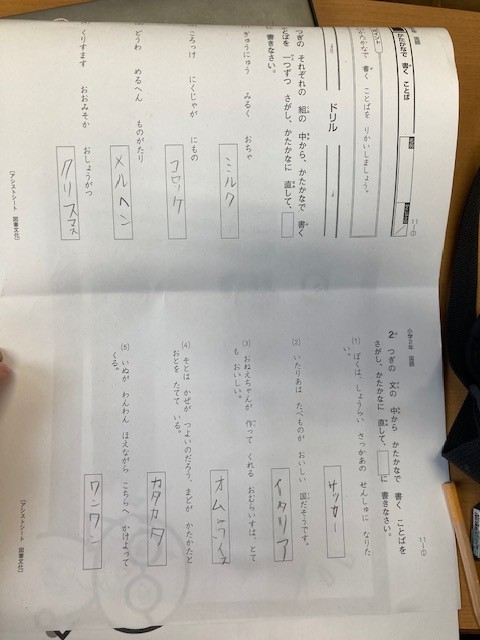 小学2年 国語
かたかなで 書く ことば
11-①
ポイント
かたかなで 書く ことばを りかいしましょう。
ドリル
つぎの それぞれの 組の 中から、かたかなで 書く
ことばを 一つずつ さがし、かたかなに 直して、
に 書きなさい。
ぎゅうにゅう みるく おちゃ
ミルク
ころっけ にくじゃが にもの
コロッケ
どうわ めるへん ものがたり
メルヘン
くりすます おおみそか おしょうがつ
クリスマス
〔アシストシート 図書文化〕
小学2年 国語
11-①
2 つぎの 文の 中から かたかなで 書く ことばを
さがし、かたかなに 直して、 に 書きなさい。
(1) ぼくは、しょうらい さっかあの せんしゅに なりた
い。
サッカー
(2) いたりあは たべものが おいしい 国だそうです。
イタリア
(3) おねえちゃんが 作って くれる おむらいすは、とて
も おいしい。
オムライス
(4) そとは かぜが つよいのだろう、まどが かたかたと
おとを たてて いる。
カタカタ
(5) いぬが わんわん ほえながら こちらへ かけよって
くる。
ワンワン
〔アシストシート 図書文化〕